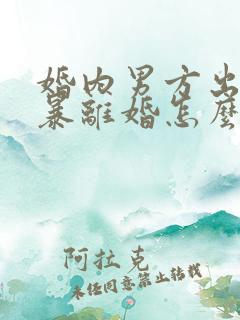 婚内男方出
暴離婚怎麼
阿拉克
未经同意禁止转载